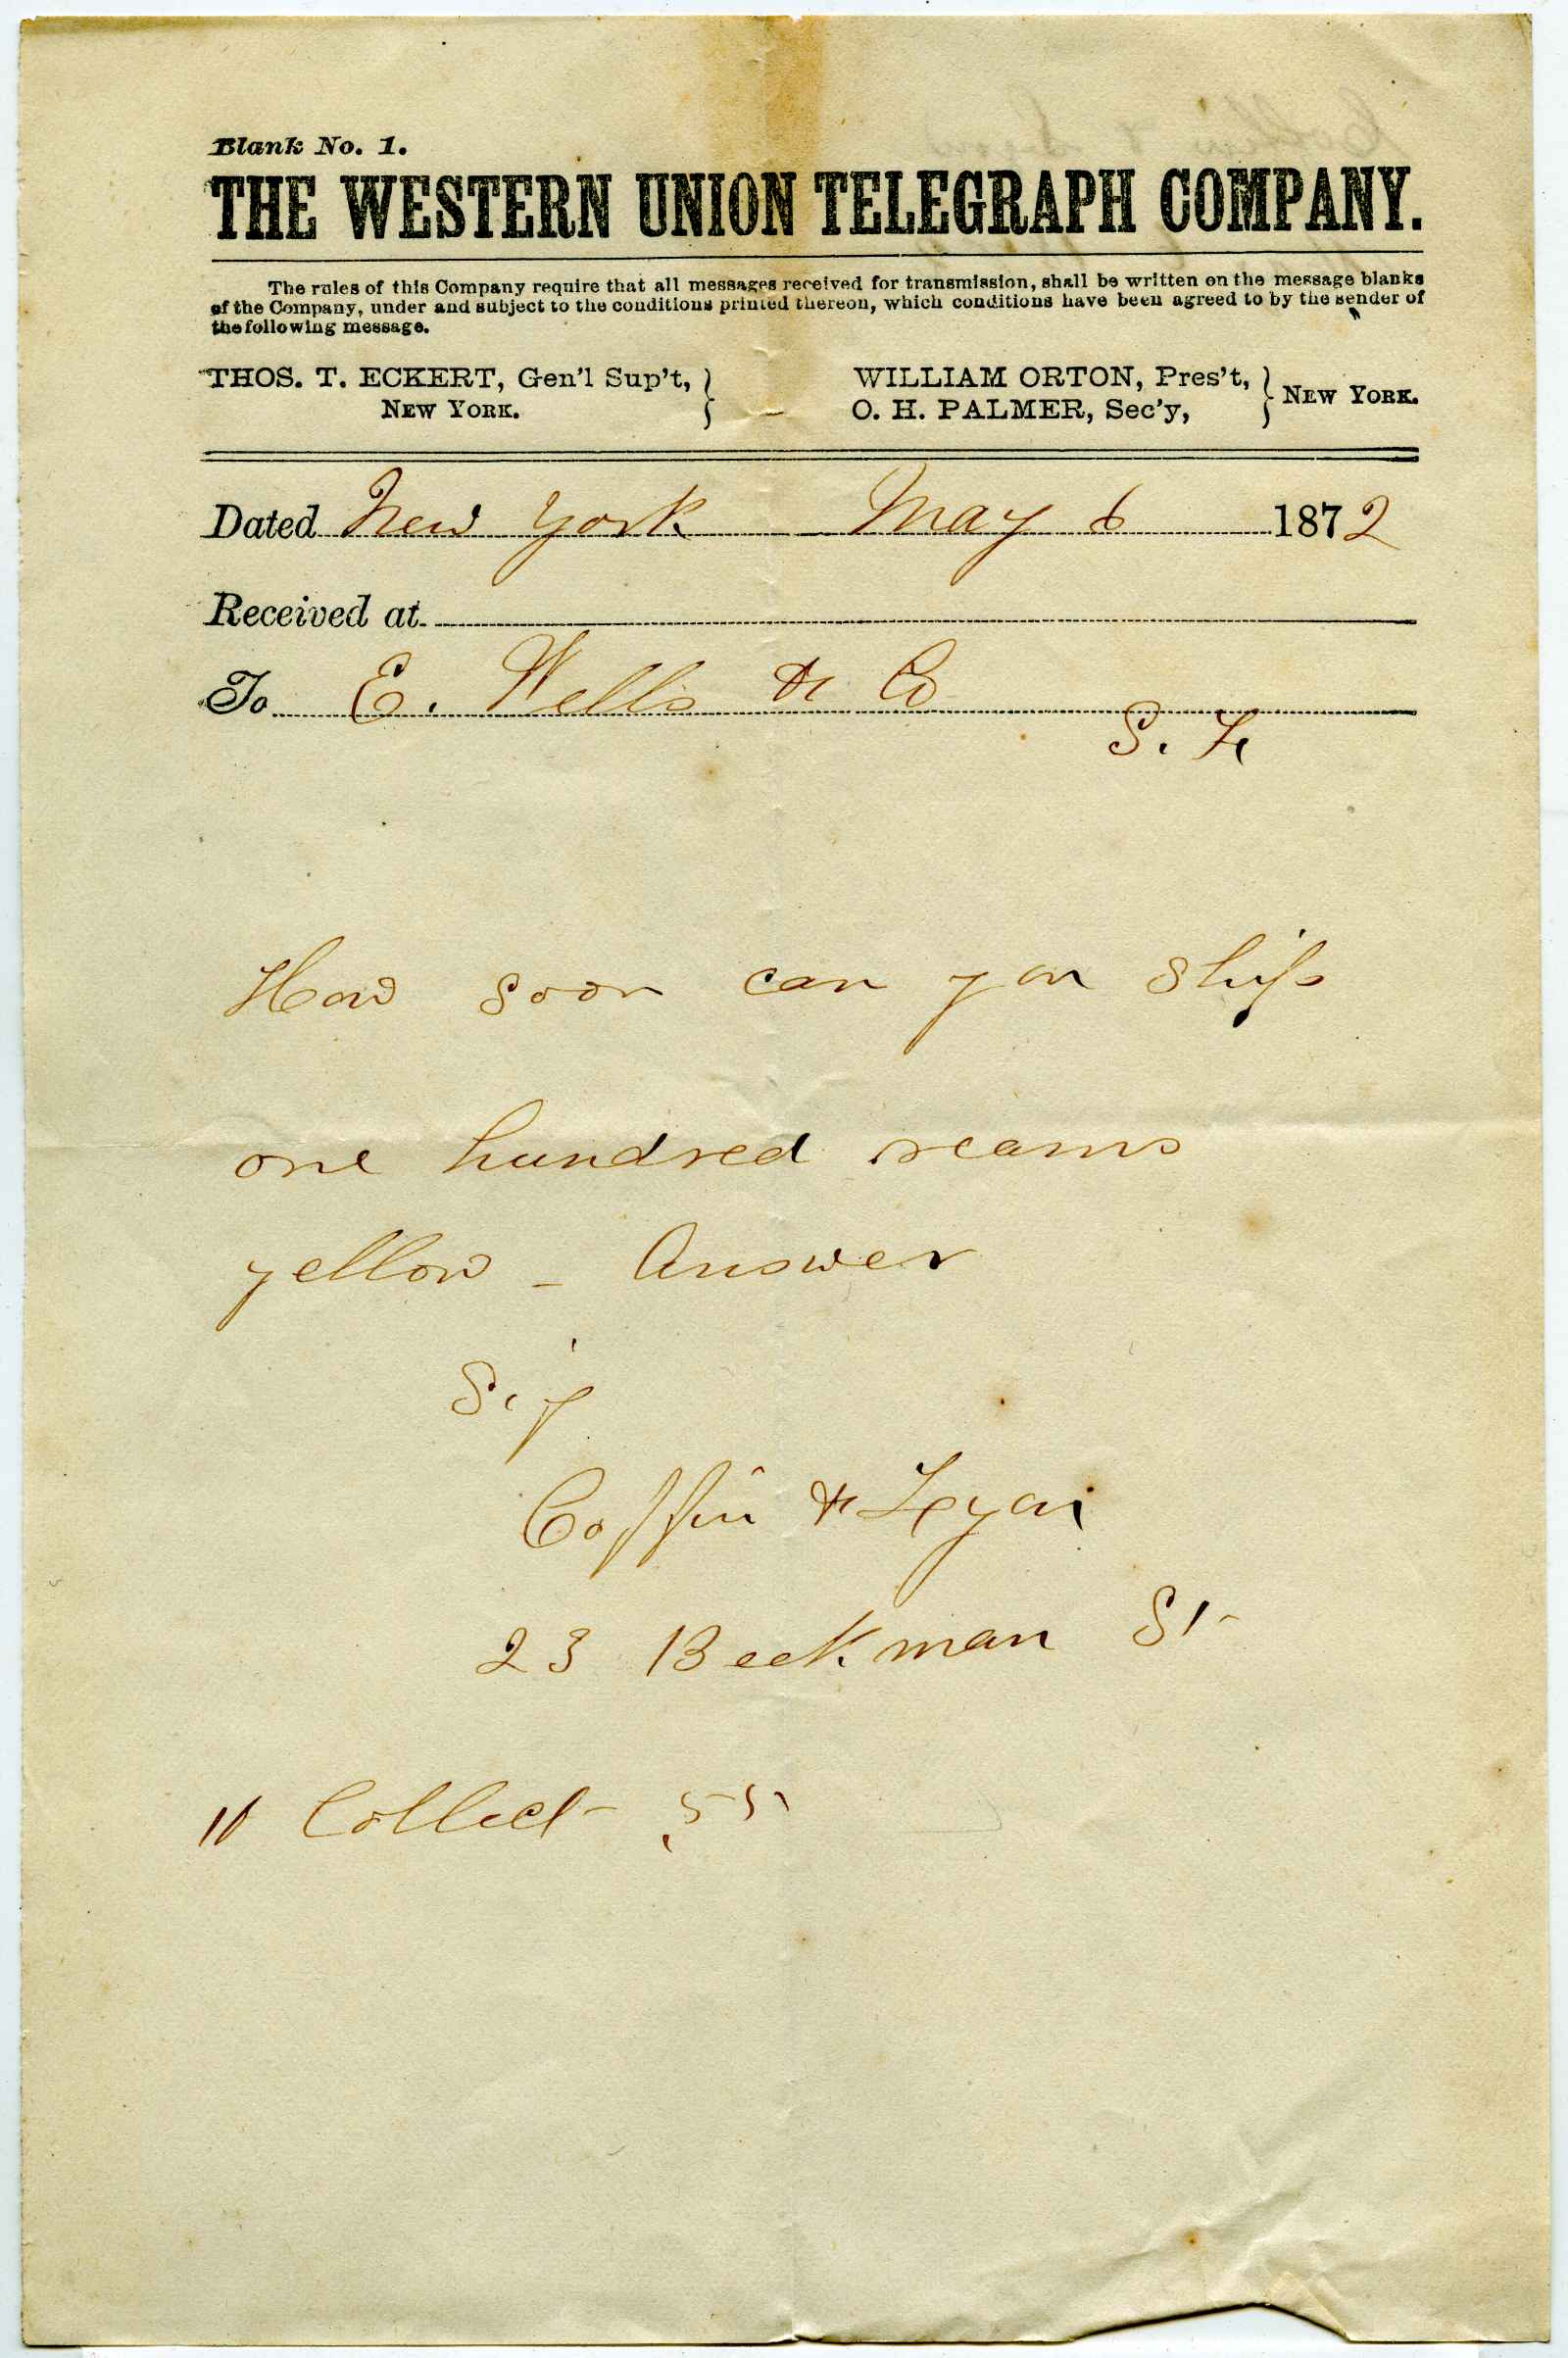 Blank No. 1.
THE WESTERN UNION TELEGRAPH COMPANY.
The rules of this Company require that all messages received for transmission, shall be written on the message blanks
of the Company, under and subject to the conditions printed thereon, which conditions have been agreed to by the sender of
the following message.
THOS. T. ECKERT, Gen'l Sup't, NEW YORK.
WILLIAM ORTON, Pres't,
O. H. PALMER, Sec'y, NEW YORK.
Dated New York May 6 1872
Received at
To E. Wells & Co
S. F.
How soon can you ship
one hundred reams
yellow - Answer
Sig
Coffin & Lyon
23 Beekman St
10 Collect 55